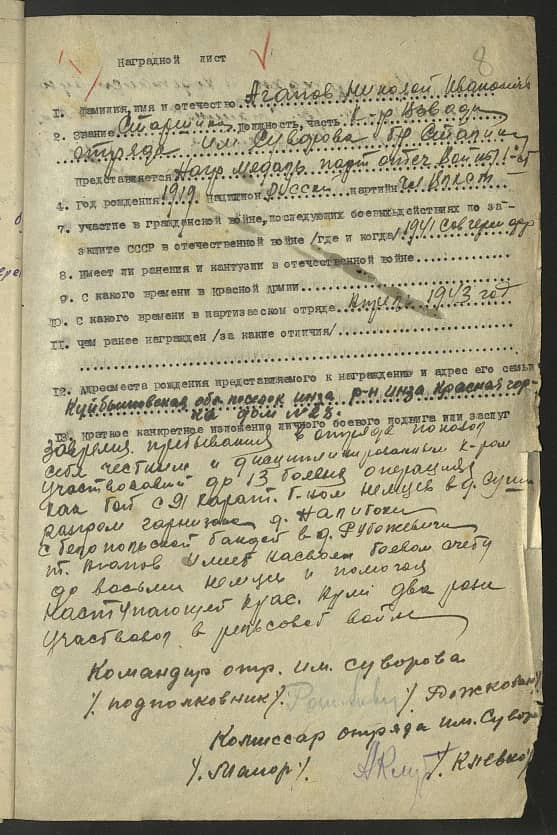 8
Наградной лист
1. Фамилия, имя и отчество Агапов Николай Иванович
2. Звание Старшина Должность, часть к-р взвода
отряда им Суворова бр Сталина
Представляется Нагр медаль парт отеч войны 1-ст
4. Год рождения 1919 национ русск партийн Чл ВЛКСМ
7. участие в гражданской войне, последующих боевых действиях по за-
защите СССР в отечественной войне /где и когда/ 1941 Сов герм фр
8. имеет ли ранения и кантузии в отечественной войне
9. С какого времени в Красной Армии
10. С какого времени в партизасском отряде Апрель 1943 год
11. чем ранее награжден /за какие отличия/
12. Адрес места рождения представляемого к награждению и адрес его семьи
Куйбышевская обл поселок инза р-н инза Красная гор-
ка дом №23.
13. Краткое канкретное изложения личного боевого подвига или заслуг
За время пребывания в отряде показал
себя честным и дисциплинированным к-ром
Участвовал до 13 боевых операциях
как бой с карат. г-ном немцев в д.
разгром гарнизона д. Налибоки
с белопольской бандой в д. Рубежевичи
т. Агапов имеет на своем боевом счету
до восьми немцев и помогая
наступающей Крас. Арми два раза
участвовал в рельсовой войне
Командир отр. им. Суворова
/. подполковник /. /Рожков/
Комиссар отряда им. Суворо
/. Майор /. /Клевко/